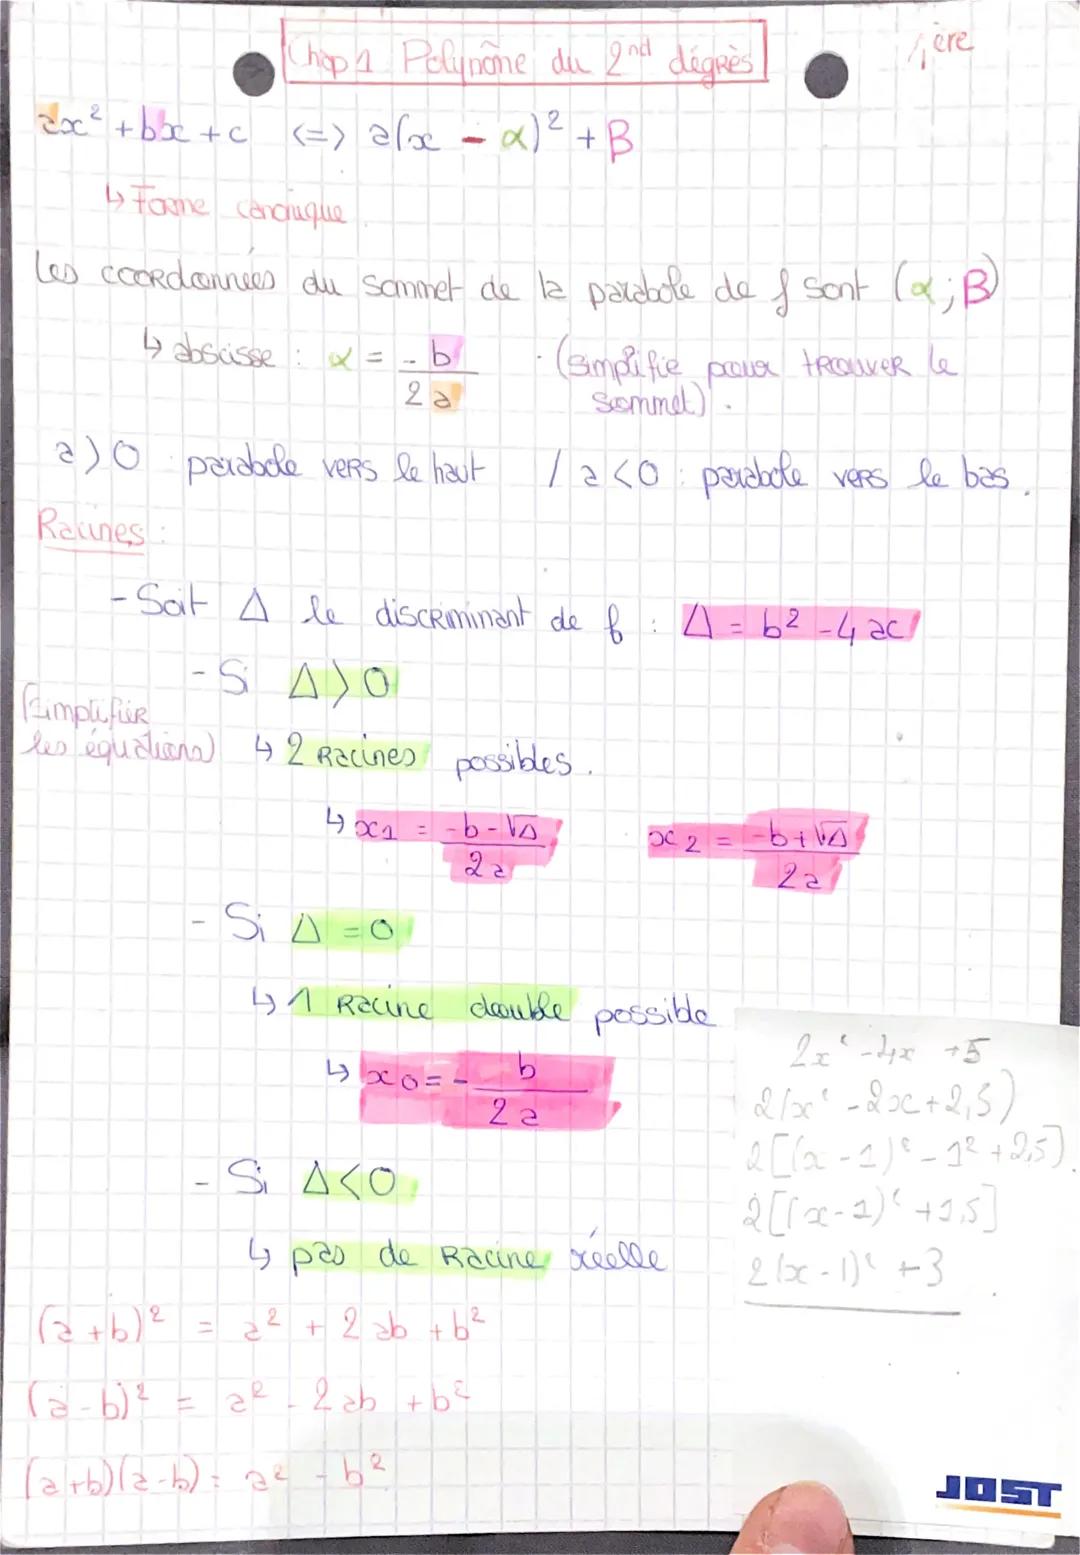 Chap 1 Polynôme du 2nd dégrès
1ère
ax² + bx + c <=> a(x - α)² + β
↳ Forme canonique
Les coordonnées du sommet de la parabole de f sont (α; β)
↳ abscisse : α = - b / 2a · (simplifie pour trouver le sommet).
a > 0 parabole vers le haut / a < 0 : parabole vers le bas.
Racines :
- Soit Δ le discriminant de f : Δ = b² - 4ac
- Si Δ > 0
(simplifier les équations)
↳ 2 racines possibles.
↳ x1 = -b - √Δ / 2a x2 = -b + √Δ / 2a
- Si Δ = 0
↳ 1 racine double possible
↳ x0 = - b / 2a
- Si Δ < 0
↳ pas de racine réelle
(a + b)² = a² + 2ab + b²
(a - b)² = a² - 2ab + b²
(a + b)(a - b) = a² - b²
2x² - 4x + 5
2(x² - 2x + 2,5)
2[(x - 1)² - 1² + 2,5).
2[(x - 1)² + 1,5]
2(x - 1)² + 3
JOST